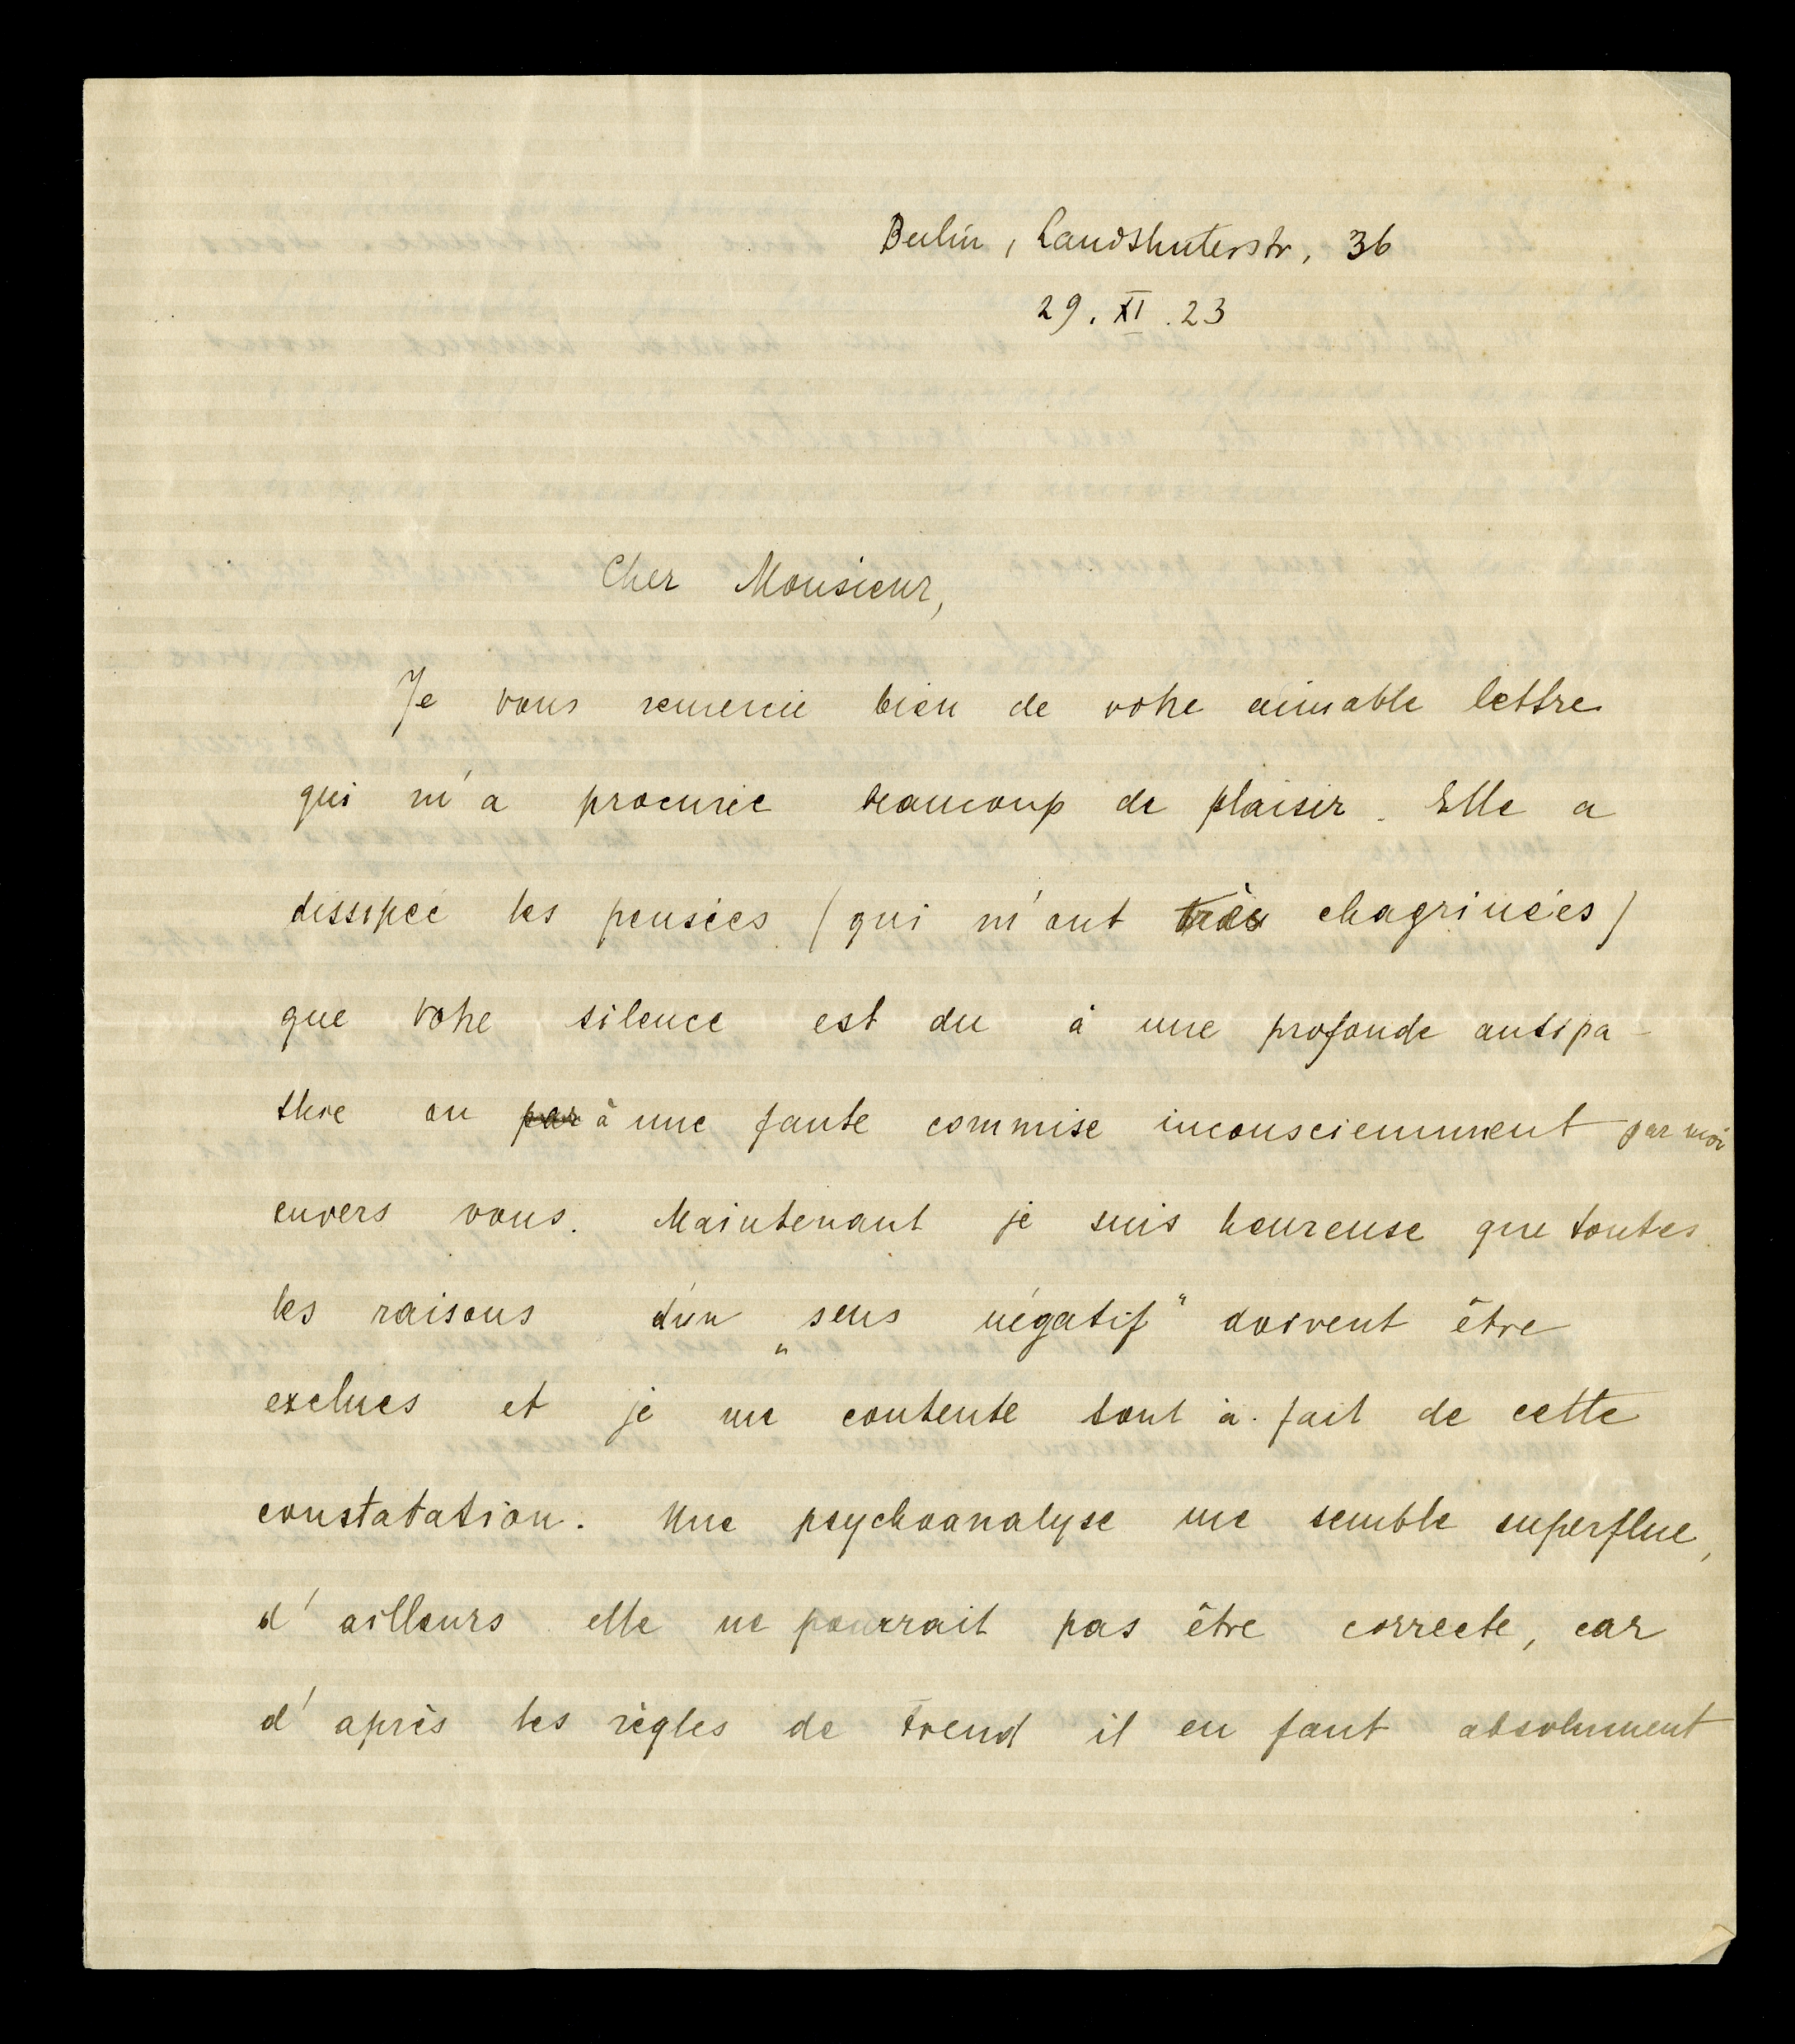 Berlin, Landshuterstr, 36
29. XI. 23
Cher Monsieur,
Je vous remercie bien de votre aimable lettre
qui m'a procurée beaucoup de plaisir. Elle a
dissipée les pensées (qui m'ont très chagrinées)
que votre silence est du à une profonde antipa-
thie ou par à une faute commise inconsciemment par moi
envers vous. Maintenant je suis heureuse que toutes
les raisons d'un „sens négatif" doivent être
exclues et je me contente tout à fait de cette
constatation. Une psychoanalyse me semble superflue,
d'ailleurs elle ne pourrait pas être correcte, car
d'après les règles de Freud il en faut absolument